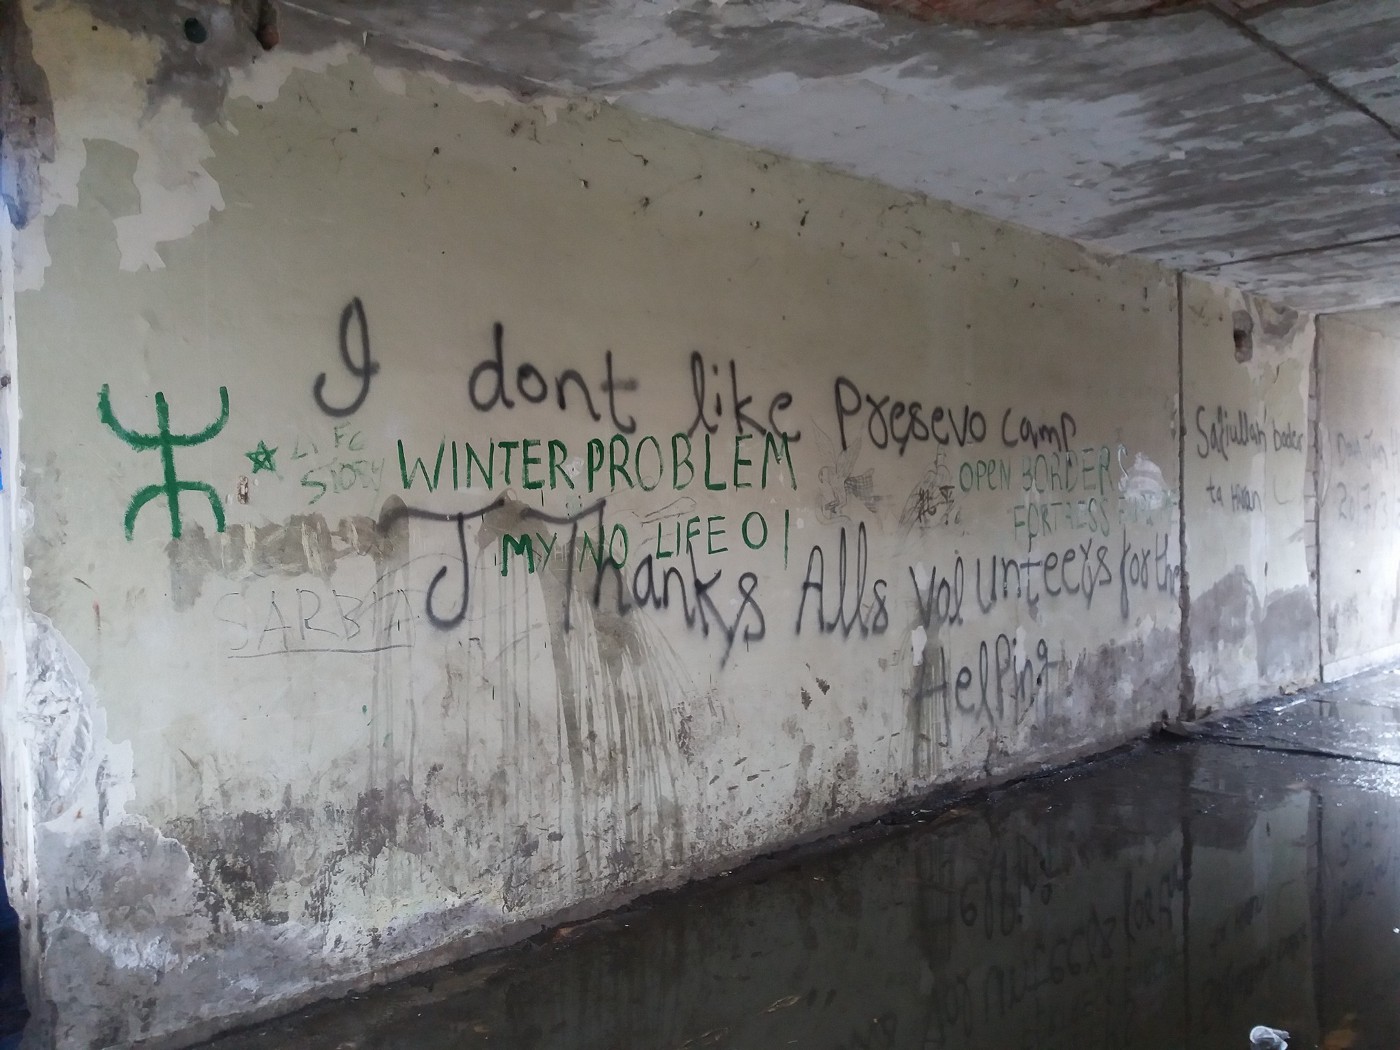 I dont like Presevo camp
LIFE
STORY
WINTER PROBLEM
OPEN BORDER
FORTRESS
MY NO LIFE
I Thanks Alls volunteers for the
Helping
SARBIA
Safiullah